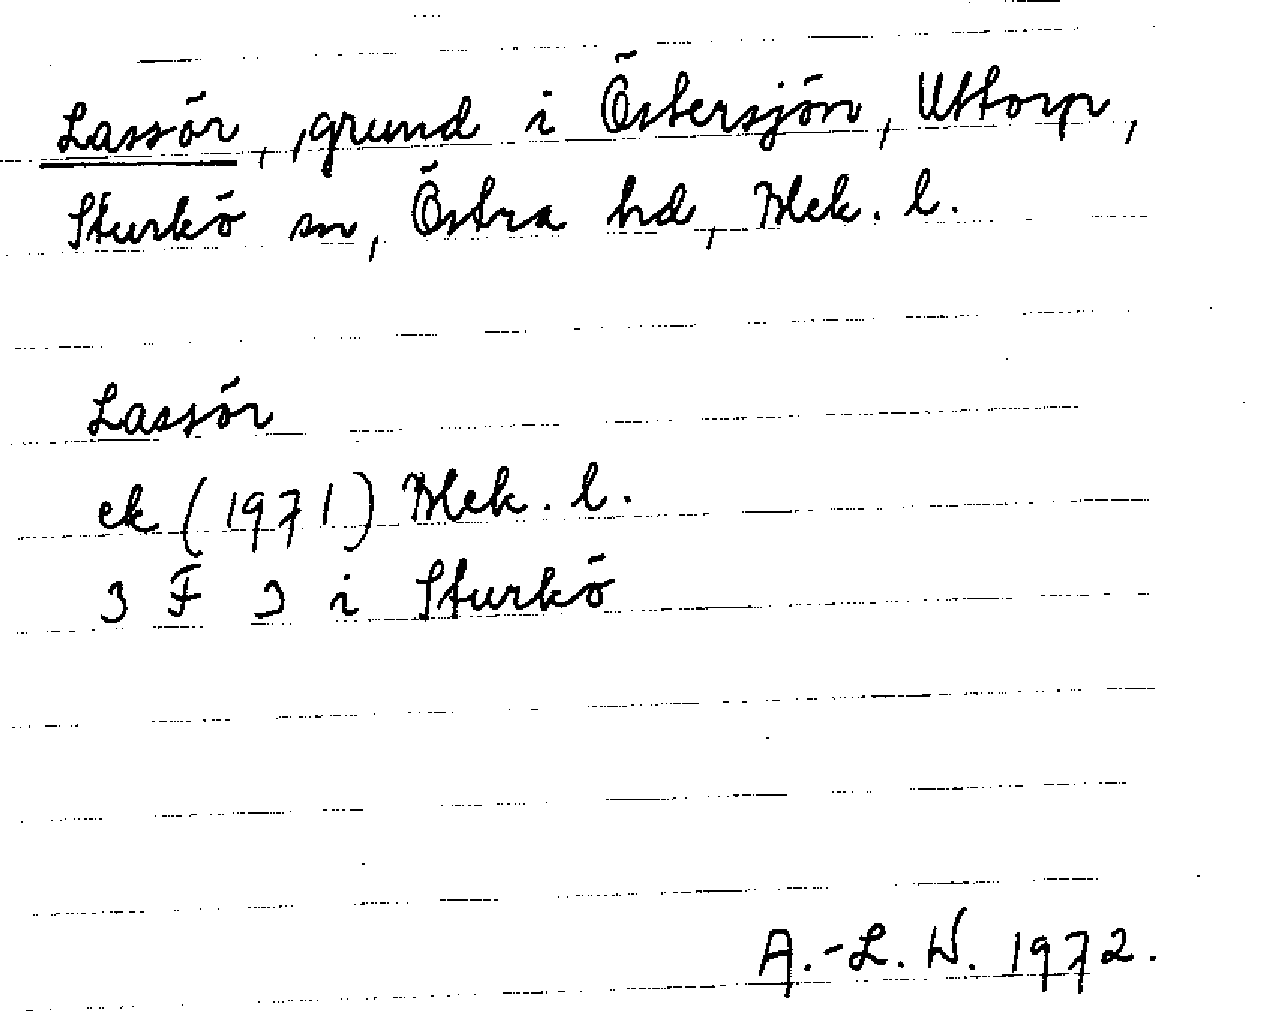 Lassör, grund i Östersjön, Uttorp,
Sturkö sn, Östra hd, Blek. l.
Lassör
ek (1971) Blek. l.
3 F 3 i Sturkö
A.-L. W. 1972.